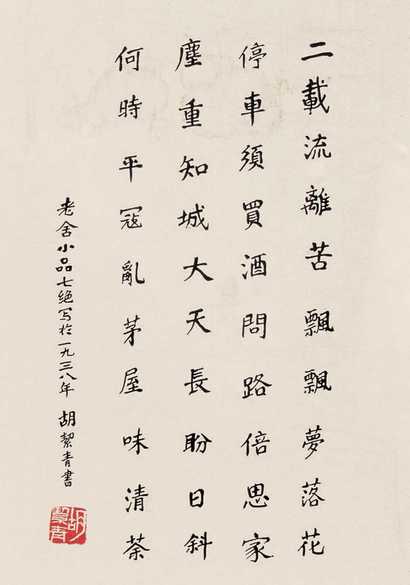 二載流離苦飄飄夢落花
停車須買酒問路倍思家
塵重知城大天長盼日斜
何時平冦亂茅屋味清茶
老舍小品七绝写於一九三八年 胡絜青書
胡絜青